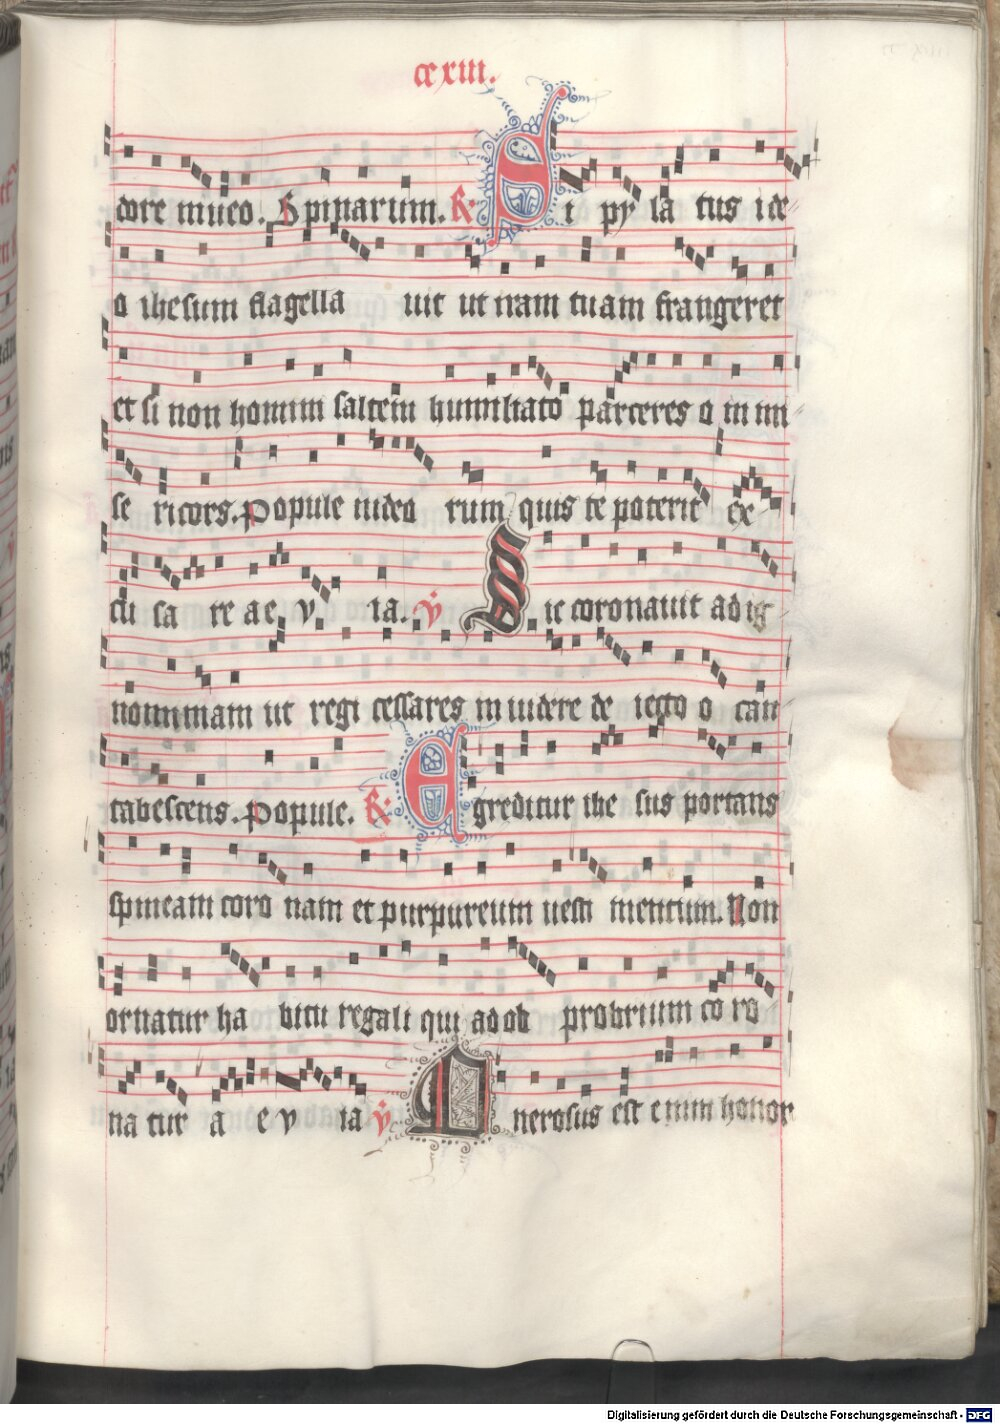 ccxiii.
dore mineo. Spinarum. R. Si py la tus ide
o ihesum flagella uit ut iram tuam frangeret
et si non homini saltem humiliato parceres o in mi
se ricors. Popule iudeo rum quis te poterit ex
cu sa re a e v ia. V. Sic coronauit ad ig
nominiam ut regi cessares inuidere de iecto o cau
tabescens. Popule. R. Egreditur ihe sus portans
spineam coro nam et purpureum uesti mentum. Non
ornatur ha bitu regali qui ad ob probrium co ro
na tur a e v ia V. Onerosus est enim honor
Digitalisierung gefördert durch die Deutsche Forschungsgemeinschaft - DFG